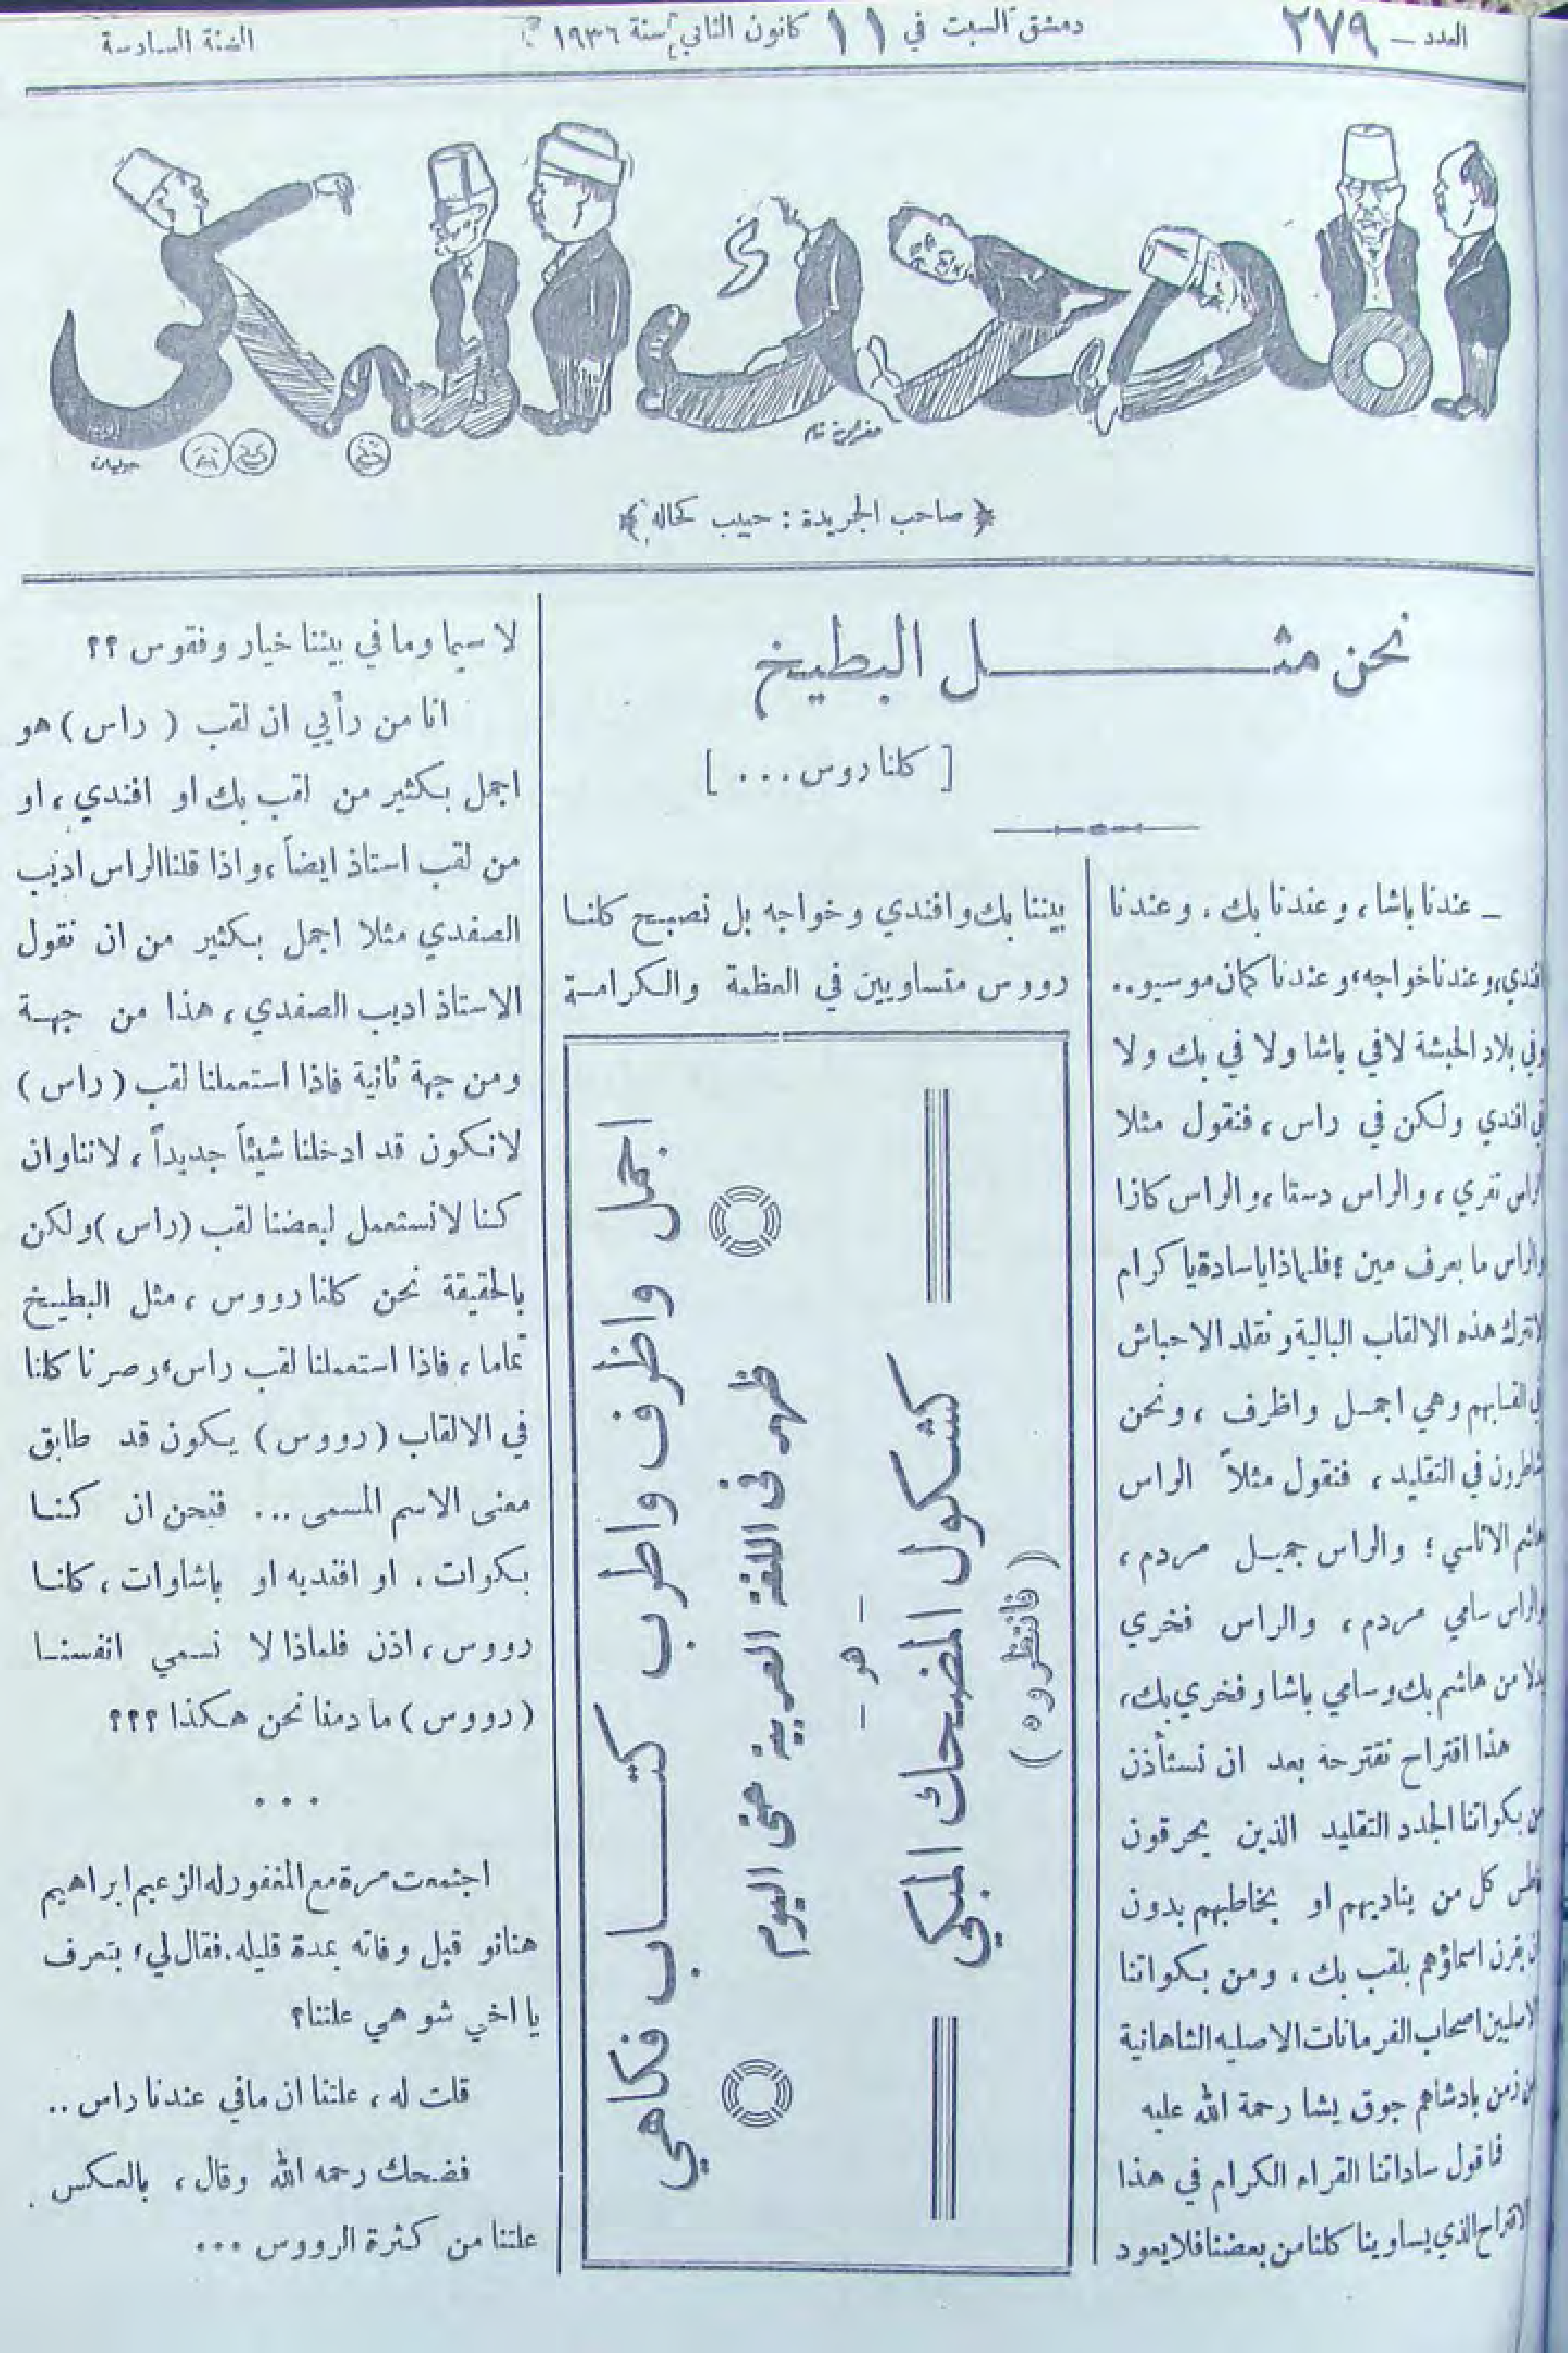 العدد — ٢٧٩
دمشق السبت في ١١ كانون الثاني سنة ١٩٣٦
السنة السادسة
المضحك المبكي
جوليان
﴿ صاحب الجريدة : حبيب كحاله ﴾
نحن مثـــل البطيخ
[ كلنا روس ... ]
— عندنا باشا، وعندنا بك، وعندنا
افندي، وعندنا خواجه، وعندنا كمان موسيو..
وفي بلاد الحبشة لا في باشا ولا في بك ولا
في افندي ولكن في راس، فنقول مثلا
الراس تفري، والراس دستا، والراس كازا
والراس ما بعرف مين ؛ فلماذا يا سادة يا كرام
لا نترك هذه الالقاب البالية ونقلد الاحباش
في القابهم وهي اجمــل واظرف، ونحن
شاطرون في التقليد، فنقول مثلاً الراس
هاشم الاتاسي ؛ والراس جميــل مردم،
والراس سامي مردم، والراس فخري
بدلا من هاشم بك وسامي باشا وفخري بك،
هذا اقتراح نقترحه بعد ان نستأذن
من بكواتنا الجدد التقليد الذين يحرقون
نفس كل من يناديهم او يخاطبهم بدون
ان يقرن اسماؤهم بلقب بك، ومن بكواتنا
الاصليين اصحاب الفرمانات الاصليه الشاهانية
من زمن بادشاهم جوق يشا رحمة الله عليه
فما قول ساداتنا القراء الكرام في هذا
الاقتراح الذي يساوينا كلنا من بعضنا فلا يعود
بيننا بك وافندي وخواجه بل نصبح كلنــا
رووس متساويين في العظمة والكرامـة
اجمل واظرف واطرب كتـــاب فكاهي
ظهر في اللغة العربية حتى اليوم
— هو —
كشكول المضحك المبكي
( فانتظروه )
لا سيما وما في بيننا خيار وفقوس ؟؟
انا من رأيي ان لقب ( راس ) هو
اجمل بكثير من لقب بك او افندي، او
من لقب استاذ ايضاً، واذا قلنا الراس اديب
الصفدي مثلا اجمل بكثير من ان نقول
الاستاذ اديب الصفدي، هذا من جهــة
ومن جهة ثانية فاذا استعملنا لقب ( راس )
لا نكون قد ادخلنا شيئاً جديداً، لاننا وان
كنا لا نستعمل لبعضنا لقب (راس) ولكن
بالحقيقة نحن كلنا رووس، مثل البطيــخ
تماما، فاذا استعملنا لقب راس، وصرنا كلنا
في الالقاب ( رووس ) يكون قد طابق
معنى الاسم المسمى ... فنحن ان كنــا
بكوات، او افنديه او باشاوات، كلنــا
رووس، اذن فلماذا لا نسمي انفسنــا
( رووس ) ما دمنا نحن هكذا ؟؟؟
• • •
اجتمعت مرة مع المغفور له الزعيم ابراهيم
هنانو قبل وفاته بمدة قليله. فقال لي، بتعرف
يا اخي شو هي علتنا؟
قلت له، علتنا ان ما في عندنا راس ..
فضحك رحمه الله وقال، بالعكس.
علتنا من كثرة الرووس ...